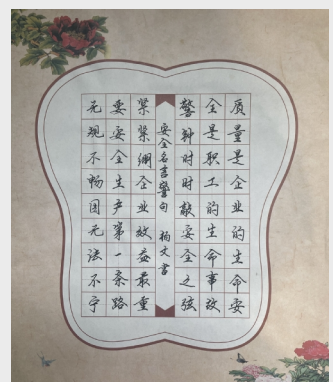 质量是企业的生命安
全是职工的生命事故
警钟时时敲安全之弦
安全名言警句 柏文书
紧紧绷企业效益最重
要安全生产第一条路
无规不畅国无法不宁